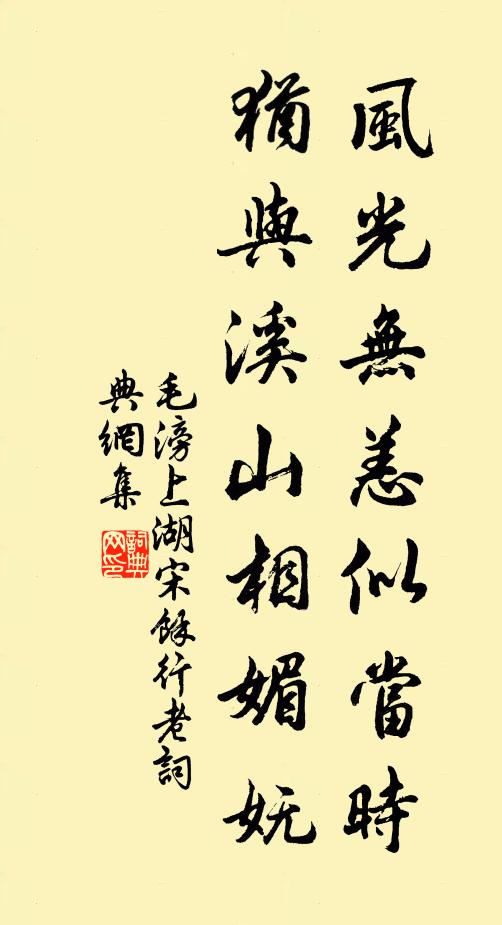 風光無恙似當時
猶與溪山相媚妩
毛滂上湖宋餘行老詞
典網集
詞典网印